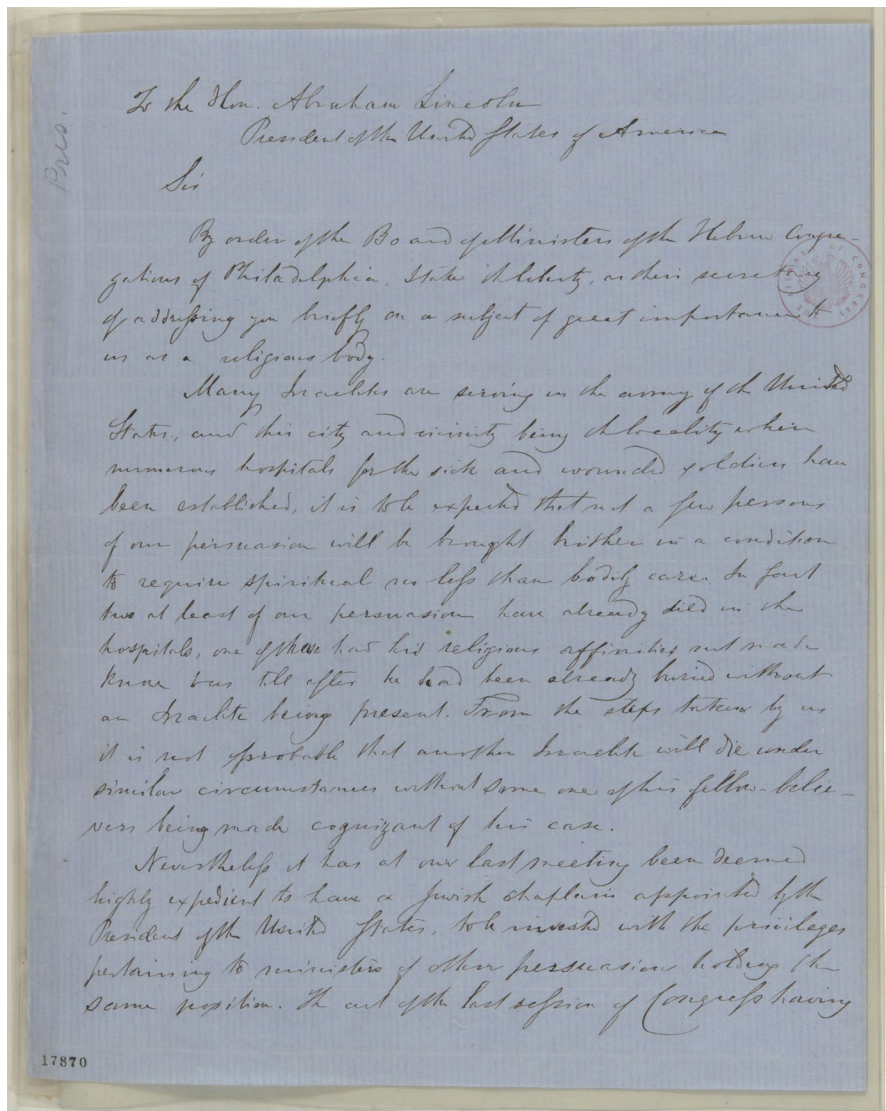 Pres.
To the Hon. Abraham Lincoln
President of the United States of America
Sir
By order of the Board of Ministers of the Hebrew Congre-
gations of Philadelphia, I take the liberty, as their secretary
of addressing you briefly on a subject of great importance to
us as a religious body.
Many Israelites are serving in the army of the United
States, and this city and vicinity being the locality where
numerous hospitals for the sick and wounded soldiers have
been established, it is to be expected that not a few persons
of our persuasion will be brought hither in a condition
to require spiritual no less than bodily care. In fact
two at least of our persuasion have already died in the
hospitals, one of these had his religious affinities not made
known till after he had been already buried without
an Israelite being present. From the steps taken by us
it is not probable that another Israelite will die under
similar circumstances without some one of his fellow-belie-
vers being made cognizant of his case.
Nevertheless it has at our last meeting been deemed
highly expedient to have a Jewish chaplain appointed by the
President of the United States, to be invested with the privileges
pertaining to ministers of other persuasion holding the
same position. The act of the last session of Congress having
17870